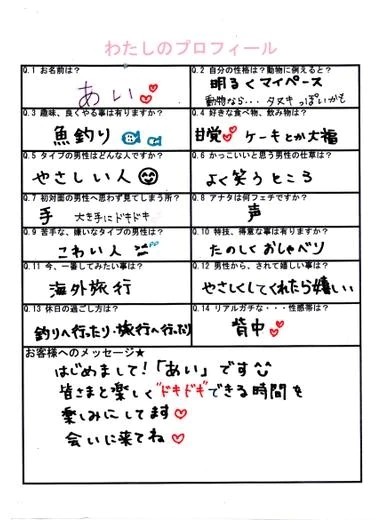 わたしのプロフィール
Q.1 お名前は?
あい
Q.2 自分の性格は?動物に例えると?
明るくマイペース
動物なら・・・タヌキっぽいかも
Q.3 趣味、良くやる事は有りますか?
魚釣り
Q.4 好きな食べ物、飲み物は?
甘党 ケーキとか大福
Q.5 タイプの男性はどんな人ですか?
やさしい人
Q.6 かっこいいと思う男性の仕草は?
よく笑うところ
Q.7 初対面の男性へ思わず見てしまう所?
手 大き手にドキドキ
Q.8 アナタは何フェチですか?
声
Q.9 苦手な、嫌いなタイプの男性は?
こわい人
Q.10 特技、得意な事は有りますか?
たのしくおしゃべり
Q.11 今、一番してみたい事は?
海外旅行
Q.12 男性から、されて嬉しい事は?
やさしくしてくれたら嬉しい
Q.13 休日の過ごし方は?
釣りへ行ったり・旅行へ行ったり
Q.14 リアルガチな・・・性感帯は?
背中
お客様へのメッセージ★
はじめまして!「あい」です
皆さまと楽しく"ドキドキ"できる時間を
楽しみにしてます
会いに来てね